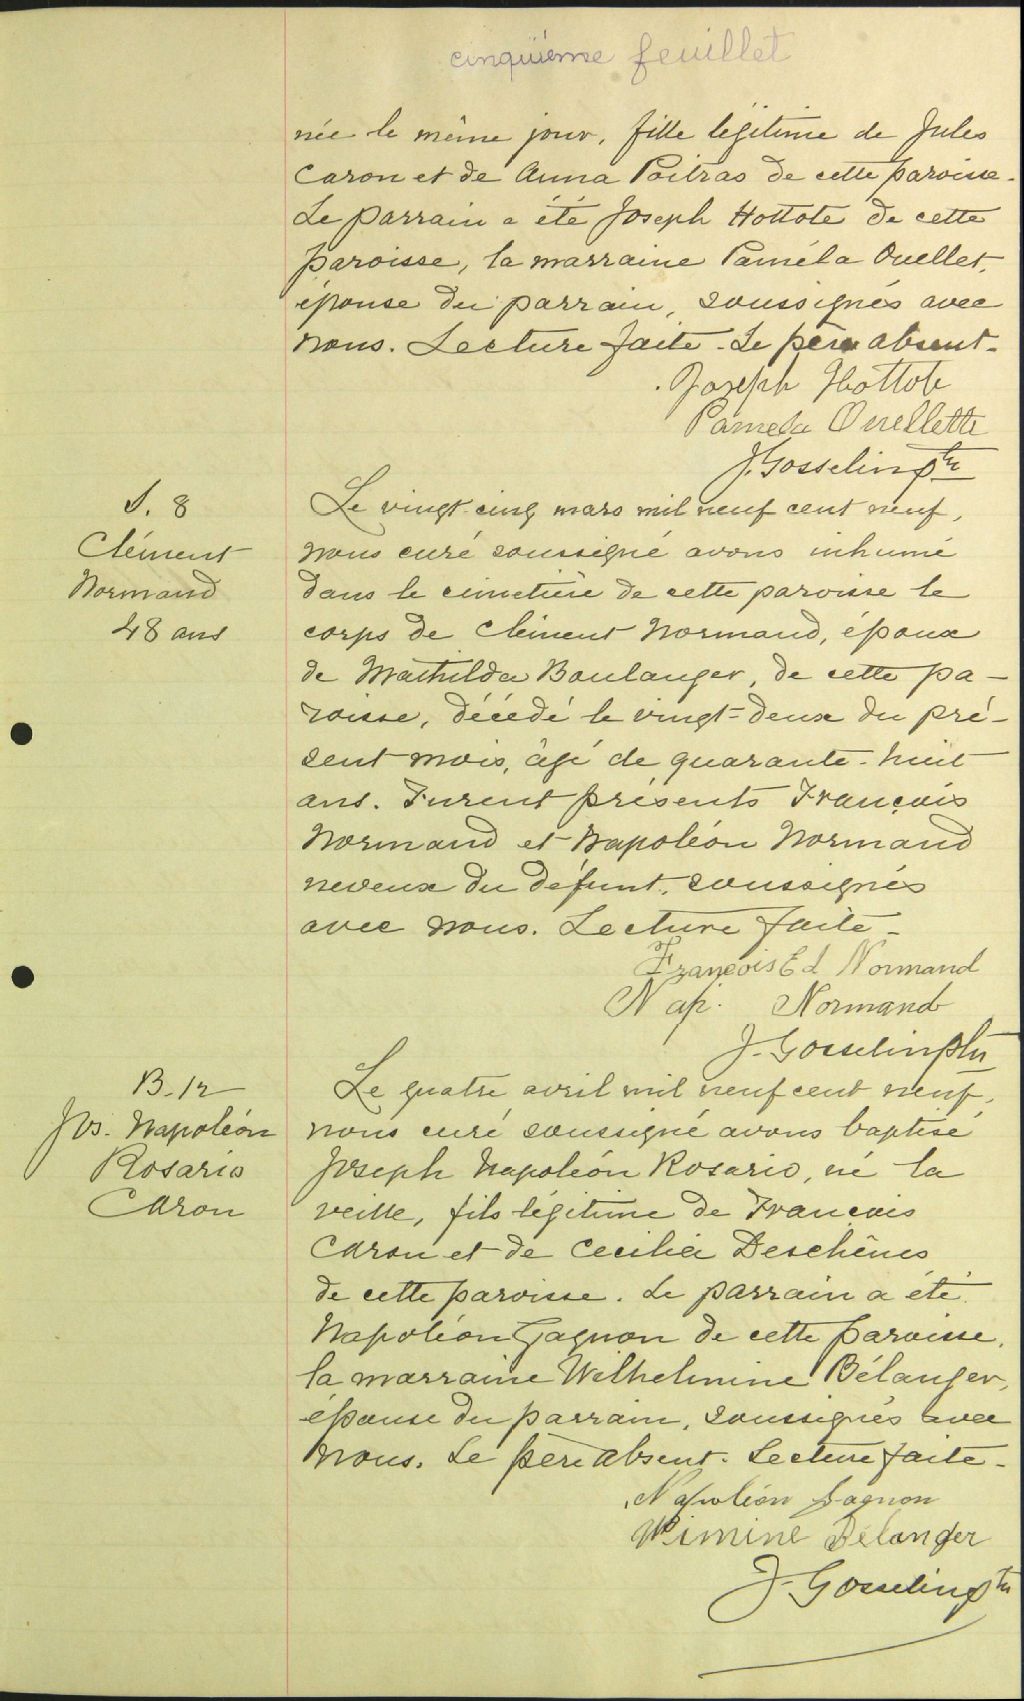 cinquième feuillet
née le même jour, fille légitime de Jules
Caron et de Anna Poitras de cette paroisse.
Le parrain a été Joseph Hottote de cette
paroisse, la marraine Paméla Ouellet,
épouse du parrain, soussignés avec
nous. Lecture faite. Le père absent.
Joseph Hottote
Pamela Ouellette
J. Gosselin ptre
S. 8
Clément
Normand
48 ans
Le vingt-cinq mars mil neuf cent neuf,
nous curé soussigné avons inhumé
dans le cimetière de cette paroisse le
corps de Clément Normand, époux
de Mathilda Boulanger, de cette pa-
roisse, décédé le vingt-deux du pré-
sent mois, âgé de quarante-huit
ans. Furent présents François
Normand et Napoléon Normand
neveux du défunt, soussignés
avec nous. Lecture faite-
François Ed Normand
Nap. Normand
J. Gosselin ptre
B. 12
Jos. Napoléon
Rosario
Caron
Le quatre avril mil neuf cent neuf,
nous curé soussigné avons baptisé
Joseph Napoléon Rosario, né la
veille, fils légitime de François
Caron et de Cecilia Deschênes
de cette paroisse. Le parrain a été
Napoléon Gagnon de cette paroisse,
la marraine Wilhelmine Bélanger,
épouse du parrain, soussignés avec
nous. Le père absent. Lecture faite-
Napoléon Gagnon
Wimine Bélanger
J. Gosselin ptre